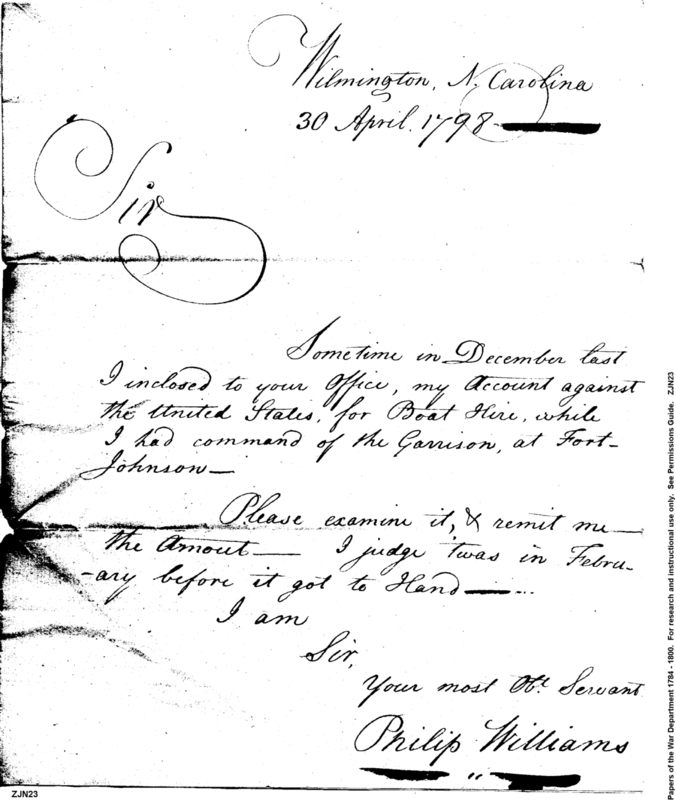 Wilmington, N. Carolina
30 April. 1798
Sir
Sometime in December last
I inclosed to your Office, my Account against
the United States, for Boat Hire, while
I had command of the Garrison, at Fort-
Johnson—
Please examine it, & remit me—
the Amout— I judge 'twas in Febru-
-ary before it got to Hand—...
I am
Sir,
Your most Obt. Servant
Philip Williams
ZJN23
Papers of the War Department 1784 - 1800. For research and instructional use only. See Permissions Guide. ZJN23